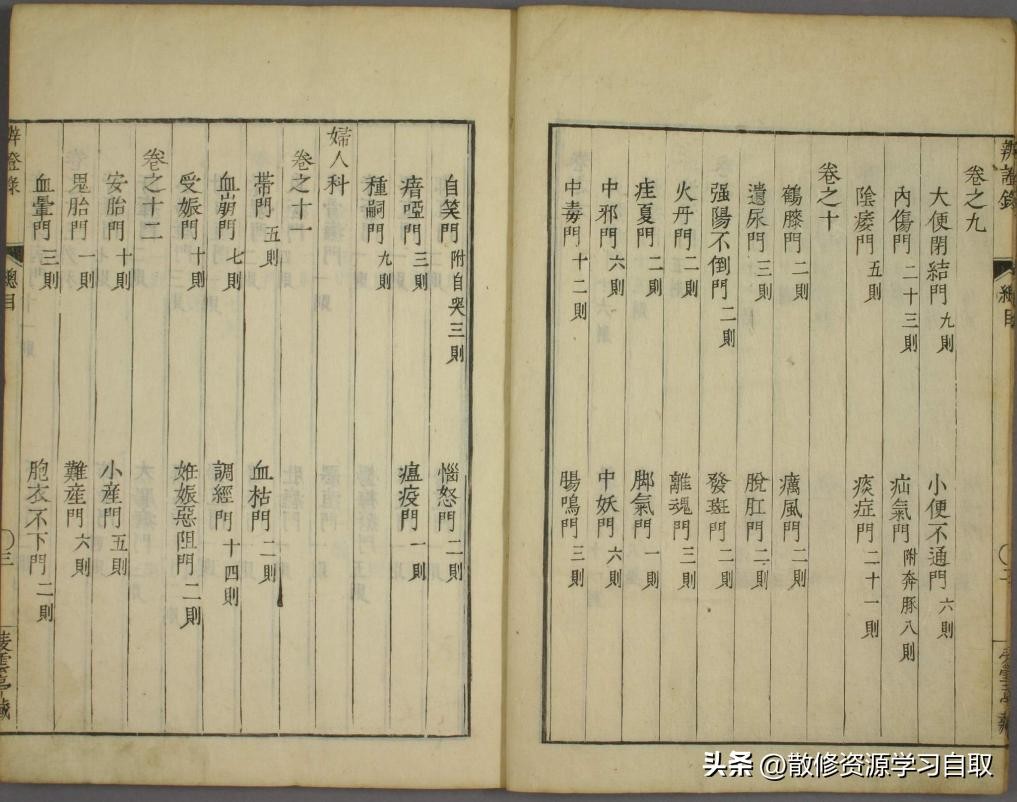 辨證錄
總目
卷之九
大便閉結門 九則
小便不通門 六則
內傷門 二十三則
疝氣門 附奔豚八則
陰痿門 五則
痰症門 二十一則
卷之十
鶴膝門 二則
癘風門 二則
遺尿門 三則
脫肛門 二則
强陽不倒門 二則
發斑門 二則
火丹門 二則
離魂門 三則
疰夏門 二則
脚氣門 一則
中邪門 六則
中妖門 六則
中毒門 十二則
腸鳴門 三則
自笑門 附自哭三則
惱怒門 二則
瘖啞門 三則
瘟疫門 一則
種嗣門 九則
婦人科
卷之十一
帶門 五則
血枯門 二則
血崩門 七則
調經門 十四則
受娠門 十則
妊娠惡阻門 二則
卷之十二
安胎門 十則
小產門 五則
鬼胎門 一則
難產門 六則
血暈門 三則
胞衣不下門 二則
辨證錄
總目
三
头条 @散修资源学习自取